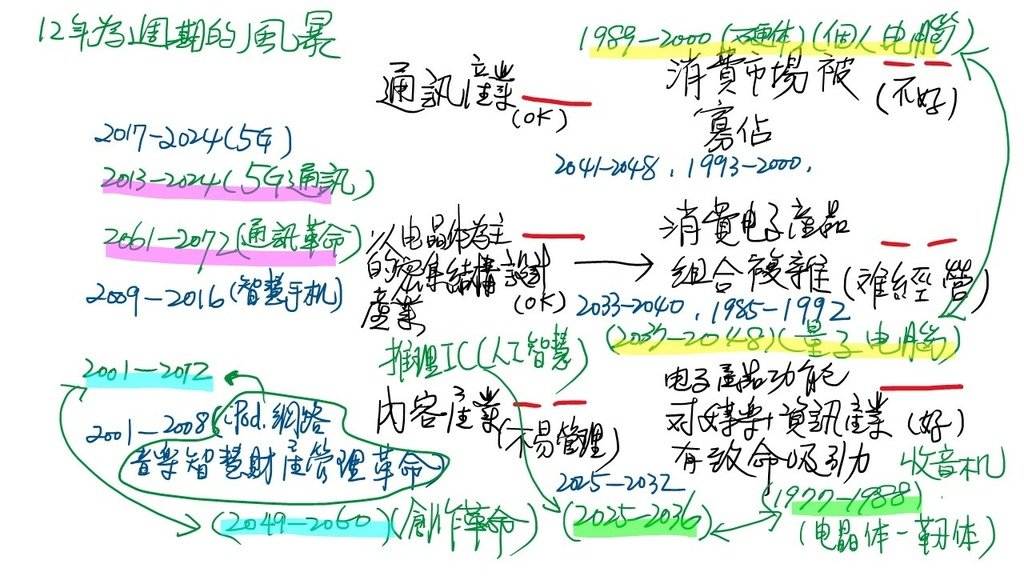 12年為週期的風暴
1989-2000(硬体)(個人电腦)
通訊產業
(OK)
消費市場被
寡佔
(不好)
2017-2024(5G)
2013-2024(5G通訊)
2041-2048, 1993-2000,
2061-2072(通訊革命)
以电晶体為主
的密集結構設計
產業
(OK)
消費电子產品
組合複雜(难經營)
2009-2016(智慧手机)
2033-2040, 1985-1992
推理IC(人工智慧)
(2037-2048)(量子电腦)
2001-2012
2001-2008(iPod.網路
音樂智慧財產管理革命)
內容產業
(不易管理)
电子產品功能
对娛樂+資訊產業
有致命吸引力
(好)
2025-2032
收音机
(2049-2060)(創作革命)
(2025-2036)
(1977-1988)
(电晶体-韌体)